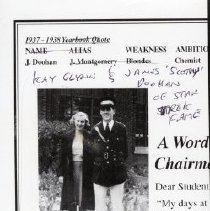 1937 - 1938 Yearbook Quote
NAME ALIAS WEAKNESS AMBITIO
J. Doohan J. Montgomery Blondes Chemist
KAY GLYNN & JAMES 'SCOTTY'
DOOHAN
OF STAR
TREK
FAME
A Word
Chairma
Dear Student
"My days at